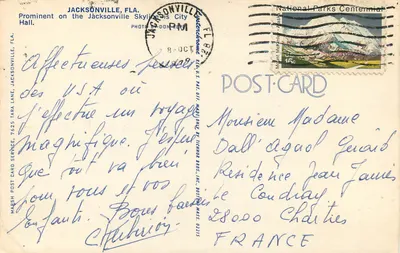 JACKSONVILLE, FLA.
Prominent on the Jacksonville Skyline is City
Hall.
JACKSONVILLE
PM
National Parks Centennial
POST-CARD
MARSH POST CARD SERVICE, 7435 TARA LANE, JACKSONVILLE, FLA.
Affectueuses pensées
des USA où
j'effectue un voyage
magnifique. J'espère
que tout va bien
pour vous et vos
enfants. Bons baisers
Monsieur Madame
Dall'agnol Guard
Résidence Jean James
Le Coudray
28000 Chartres
FRANCE